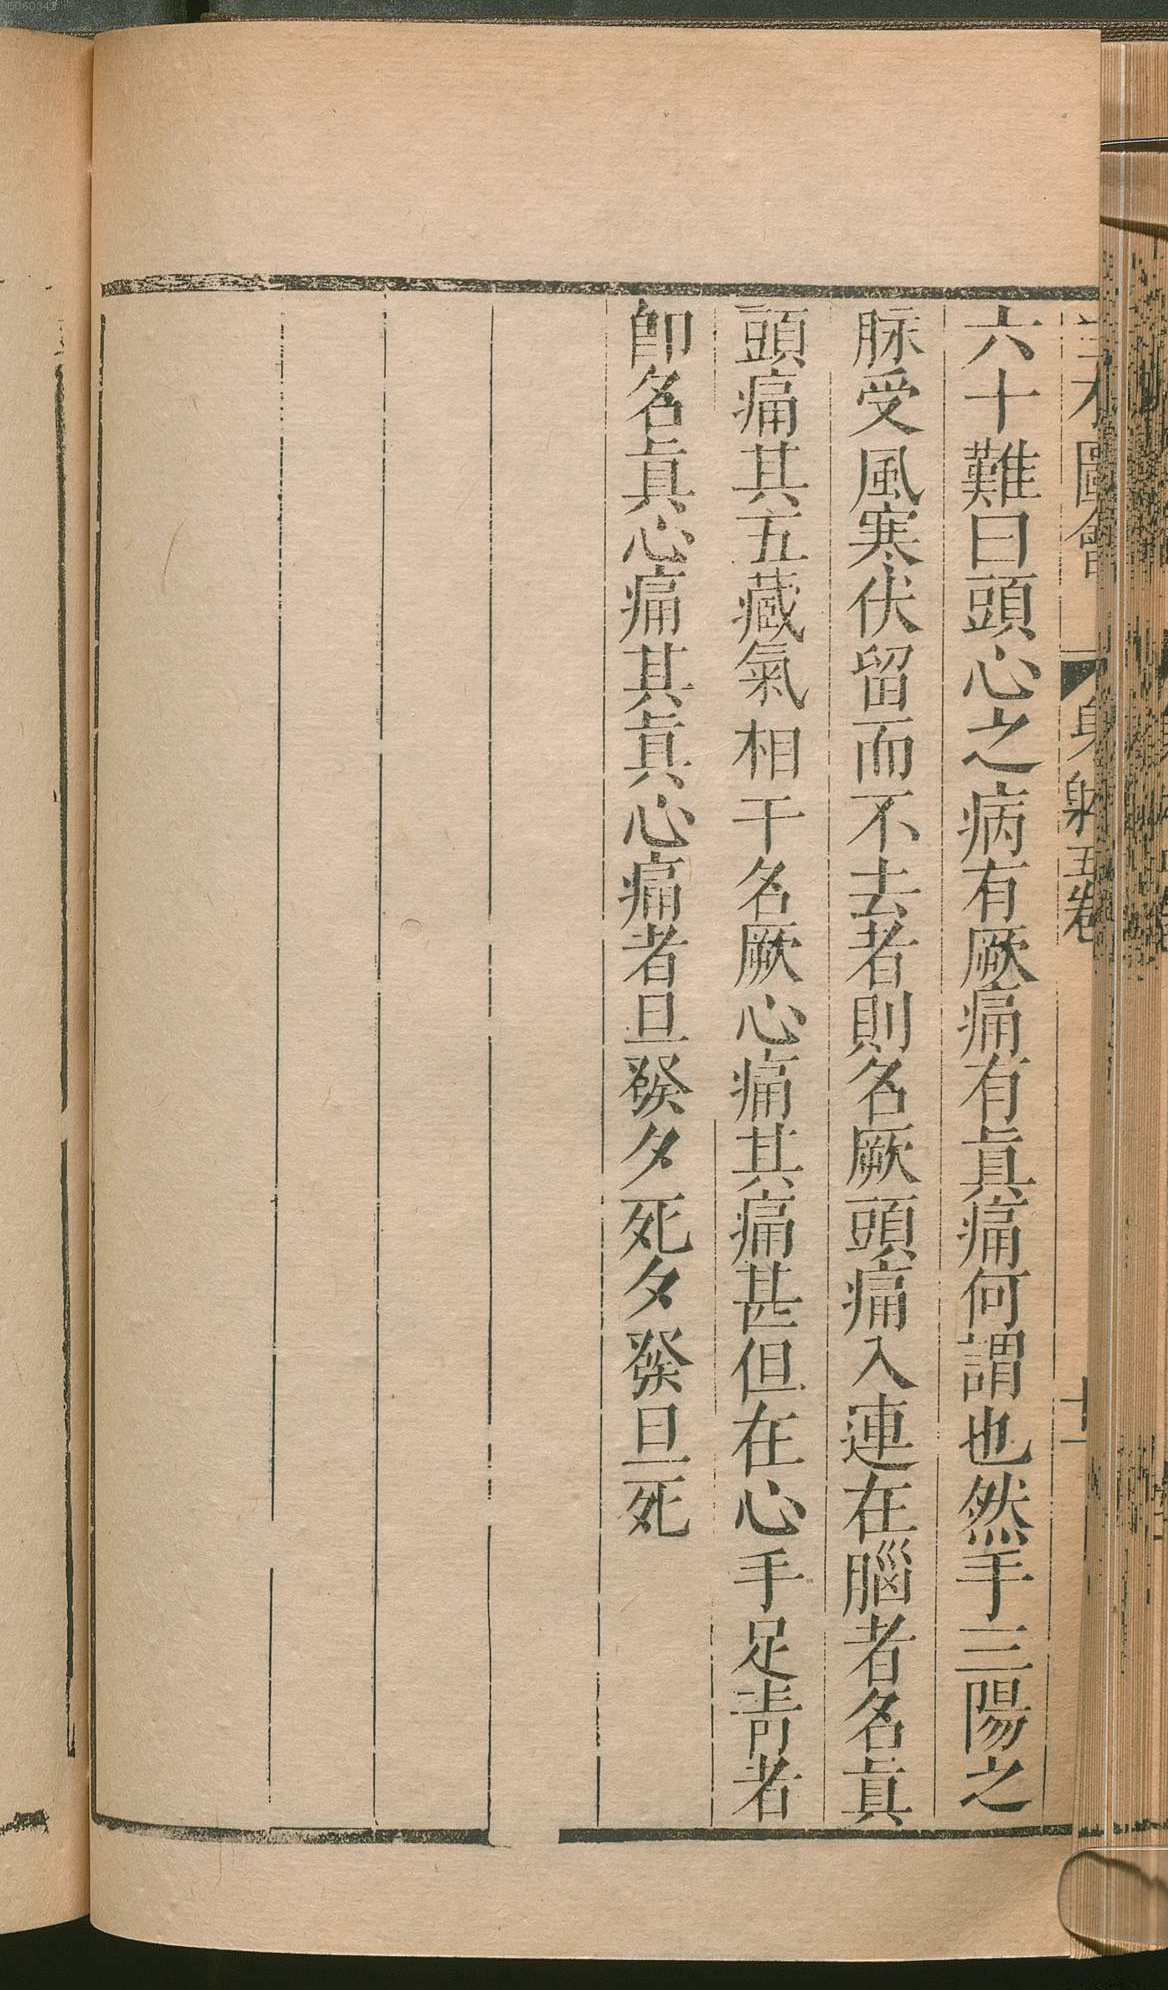 六十難曰頭心之病有厥痛有眞痛何謂也然手三陽之
脉受風寒伏留而不去者則名厥頭痛入連在腦者名眞
頭痛其五藏氣相干名厥心痛其痛甚但在心手足青者
卽名眞心痛其眞心痛者旦發夕死夕發旦死
圖會 身體五卷 十一